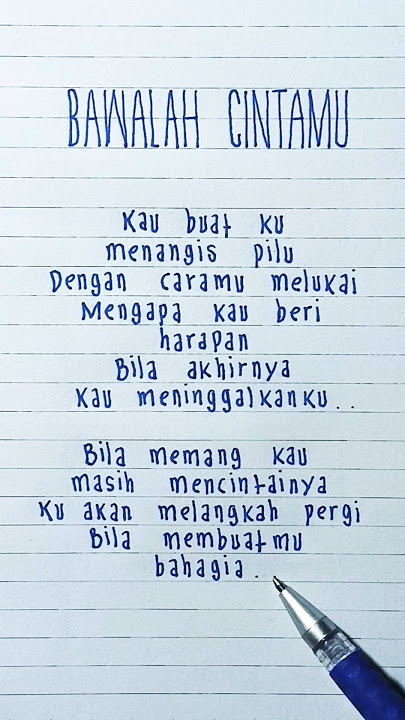 BAWALAH CINTAMU
Kau buat ku
menangis pilu
Dengan caramu melukai
Mengapa kau beri
harapan
Bila akhirnya
Kau meninggalkanku..
Bila memang kau
masih mencintainya
Ku akan melangkah pergi
Bila membuatmu
bahagia.